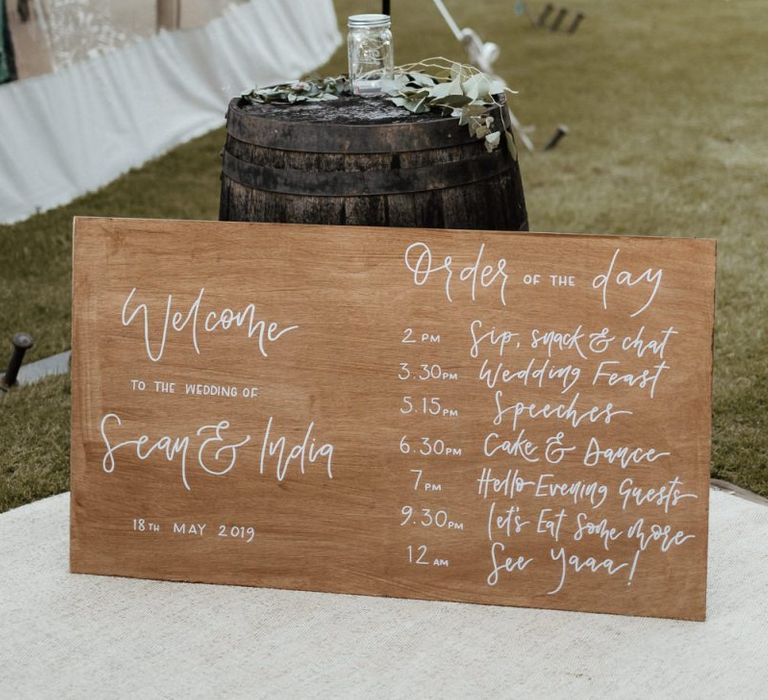 Welcome
TO THE WEDDING OF
Sean & India
18TH MAY 2019
Order OF THE day
2 PM Sip, snack & chat
3.30PM Wedding Feast
5.15PM Speeches
6.30PM Cake & Dance
7PM Hello Evening Guests
9.30PM Let's Eat Some more
12 AM See Yaaa!